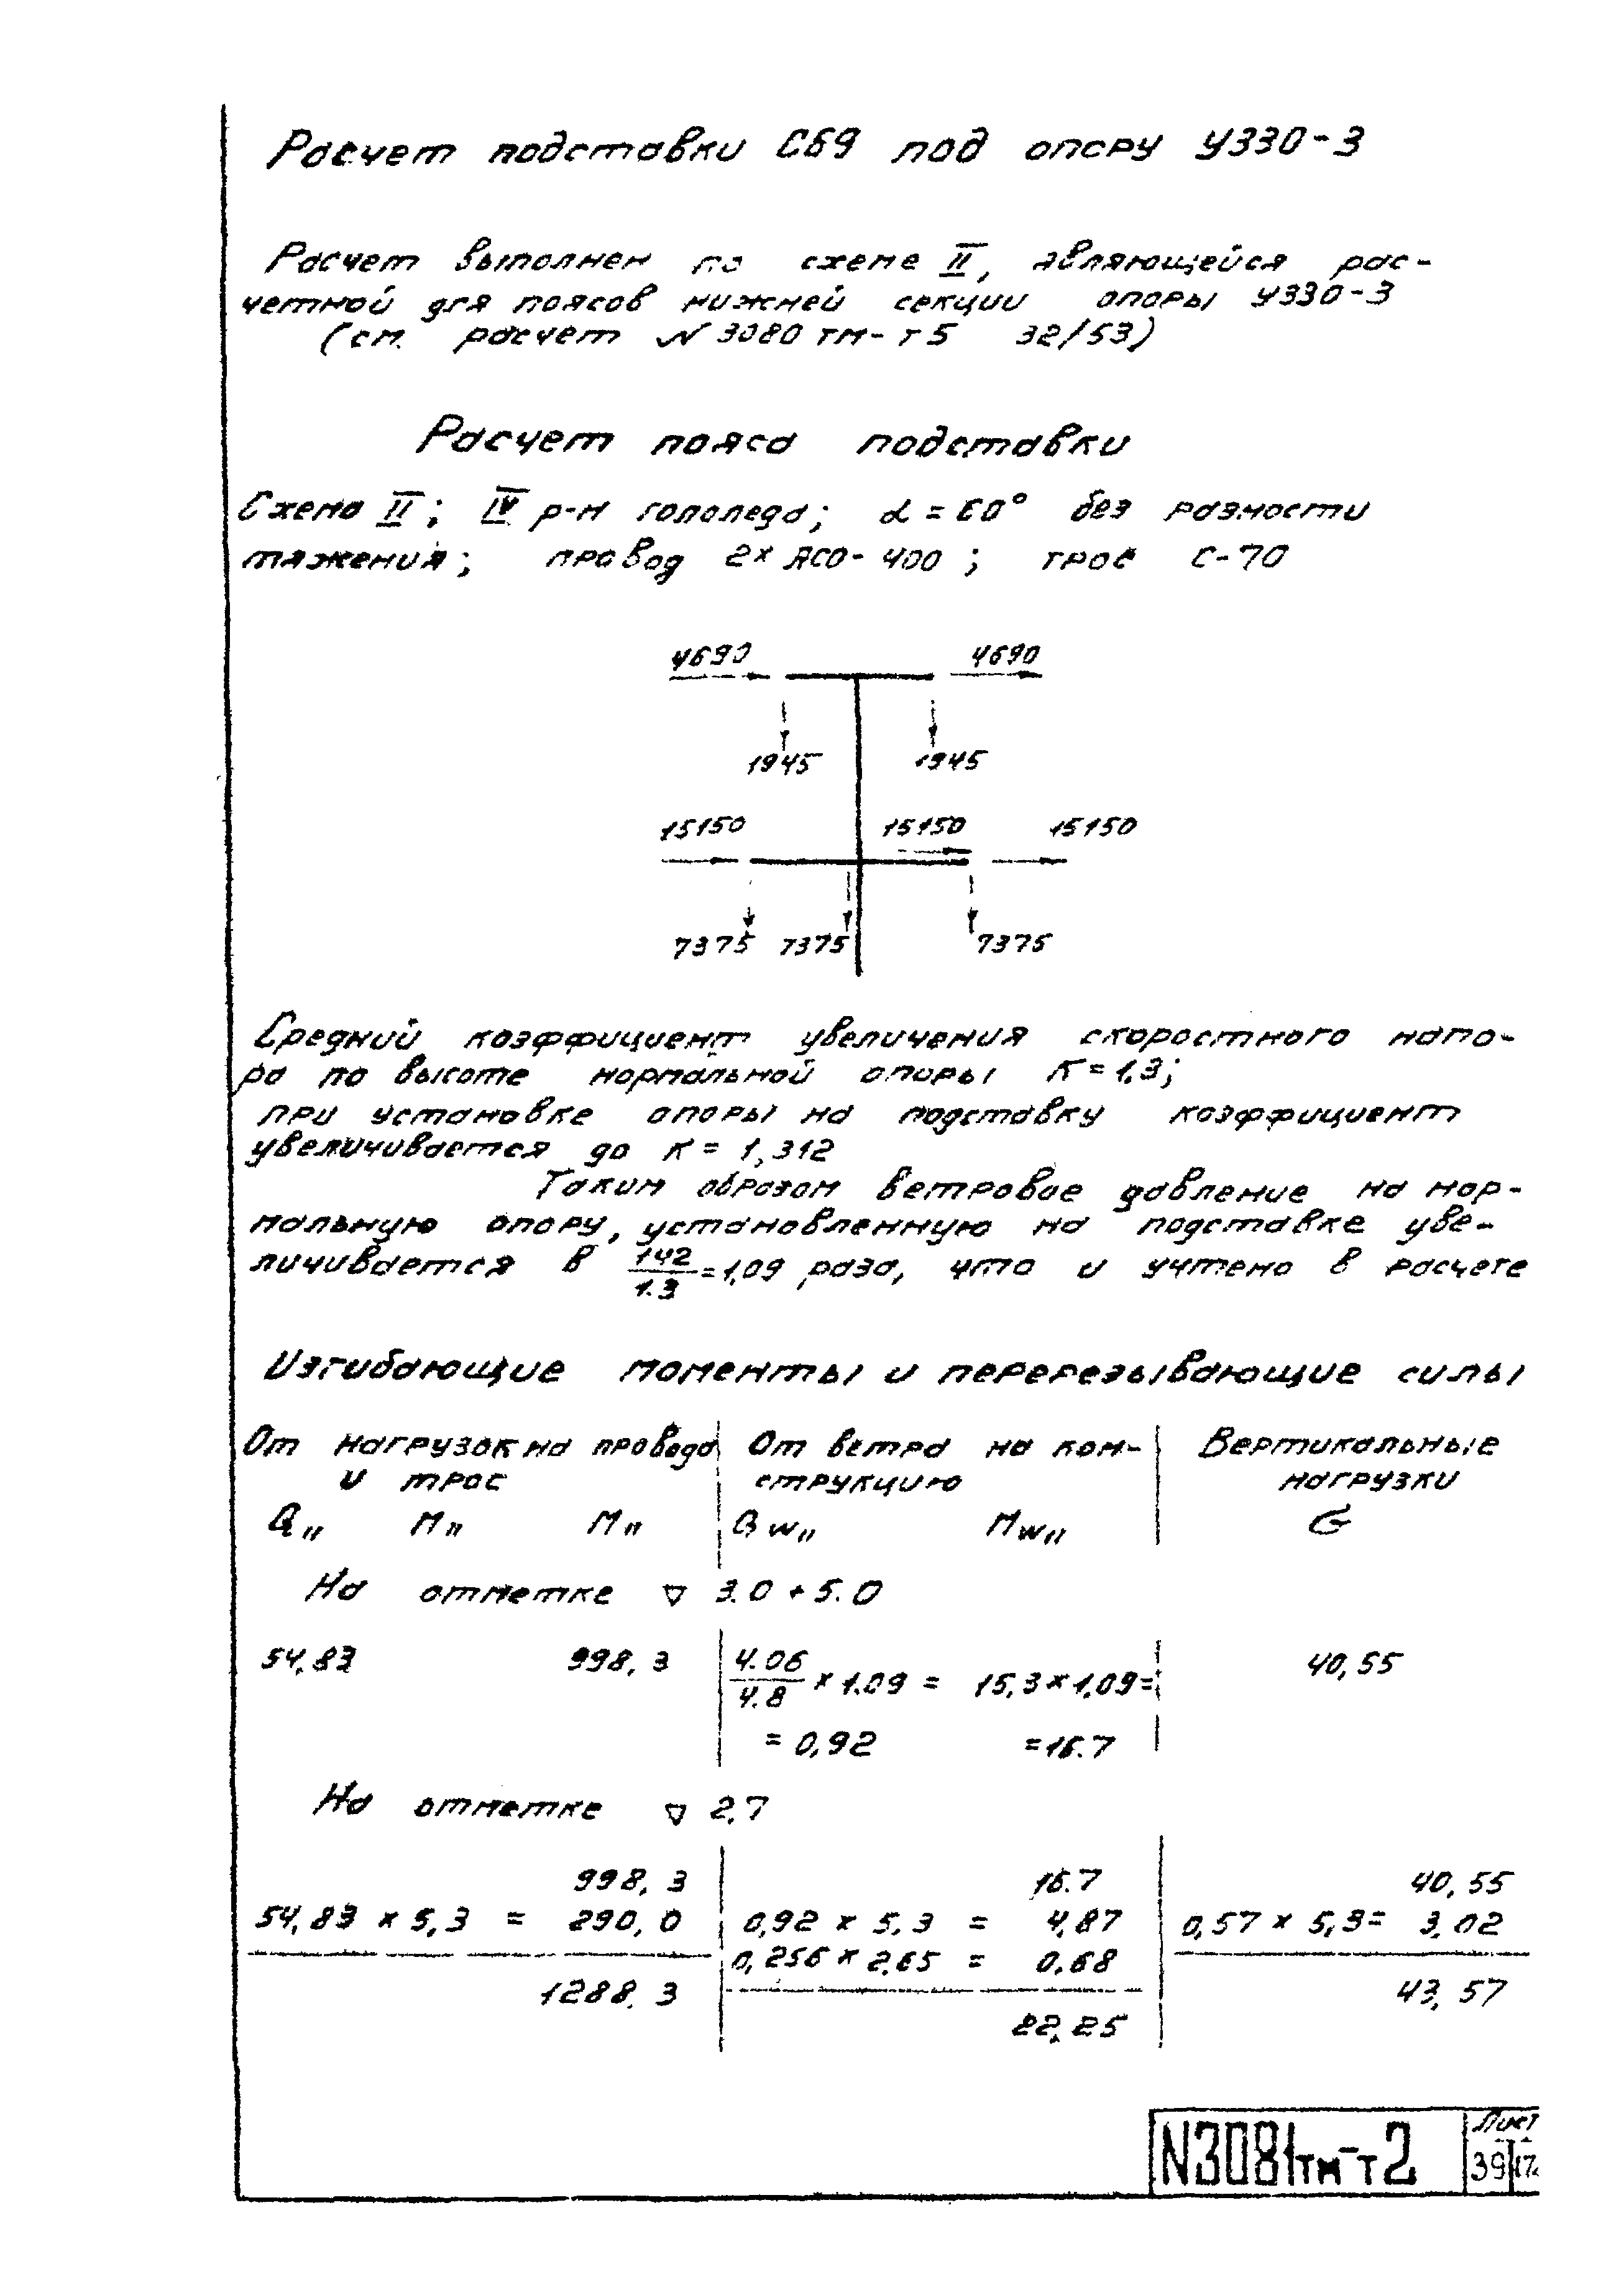 Расчет подставки С69 под опору У330-3
Расчет выполнен по схеме II, являющейся рас-
четной для поясов нижней секции опоры У330-3
(см. расчет N 3080 тм-т5 32/53)
Расчет пояса подставки
Схема II; IV р-н гололеда; α = 60° без разности
тяжения; провод 2х АСО-400; трос С-70
4690 4690
1945 1945
15150 15150 15150
7375 7375 7375
Средний коэффициент увеличения скоростного напо-
ра по высоте нормальной опоры К=1.3;
при установке опоры на подставку коэффициент
увеличивается до К = 1,312
Таким образом ветровое давление на нор-
мальную опору, установленную на подставке уве-
личивается в 142/1.3=1,09 раза, что и учтено в расчете
Изгибающие моменты и перерезывающие силы
От нагрузок на провода От ветра на кон- Вертикальные
и трос струкцию нагрузки
Q" М" М" Qw" Мw" G
На отметке ▽ 3.0 + 5.0
54,83 998,3 4.06/4.8 х 1.09 = 15,3 х 1,09 = 40,55
= 0,92 =16.7
На отметке ▽ 2,7
998,3 16.7 40,55
54,83 х 5,3 = 290,0 0,92 х 5,3 = 4,87 0,57 х 5,3= 3,02
0,256 х 2,65 = 0,68
1288,3 43,57
22,25
N3081тм-т2 Лист
39